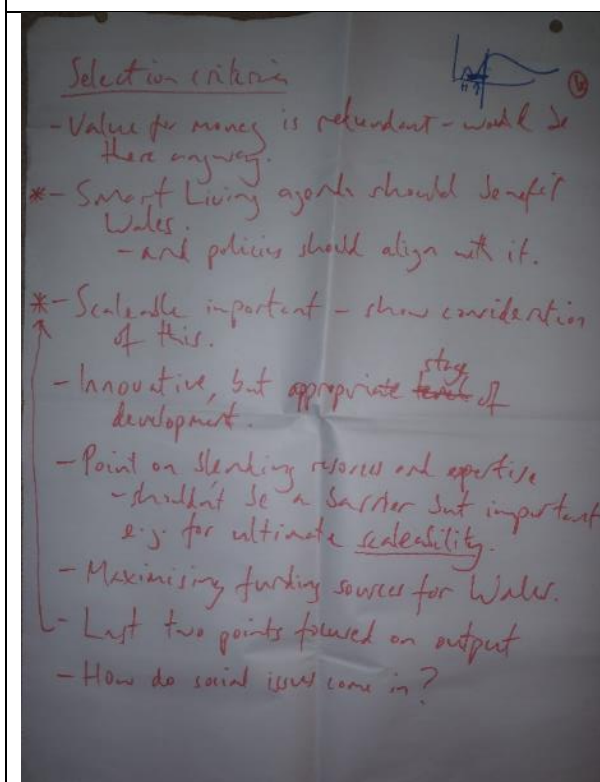 Selection criteria
- Value for money is redundant - would be
there anyway.
* - Smart Living agenda should benefit
Wales.
- and policies should align with it.
* - Scaleable important - show consideration
of this.
stage
- Innovative, but appropriate level of
development.
- Point on blending resources and expertise
- shouldn't be a barrier but important
e.g. for ultimate scaleability.
- Maximising funding sources for Wales.
- Last two points focused on output
- How do social issues come in?